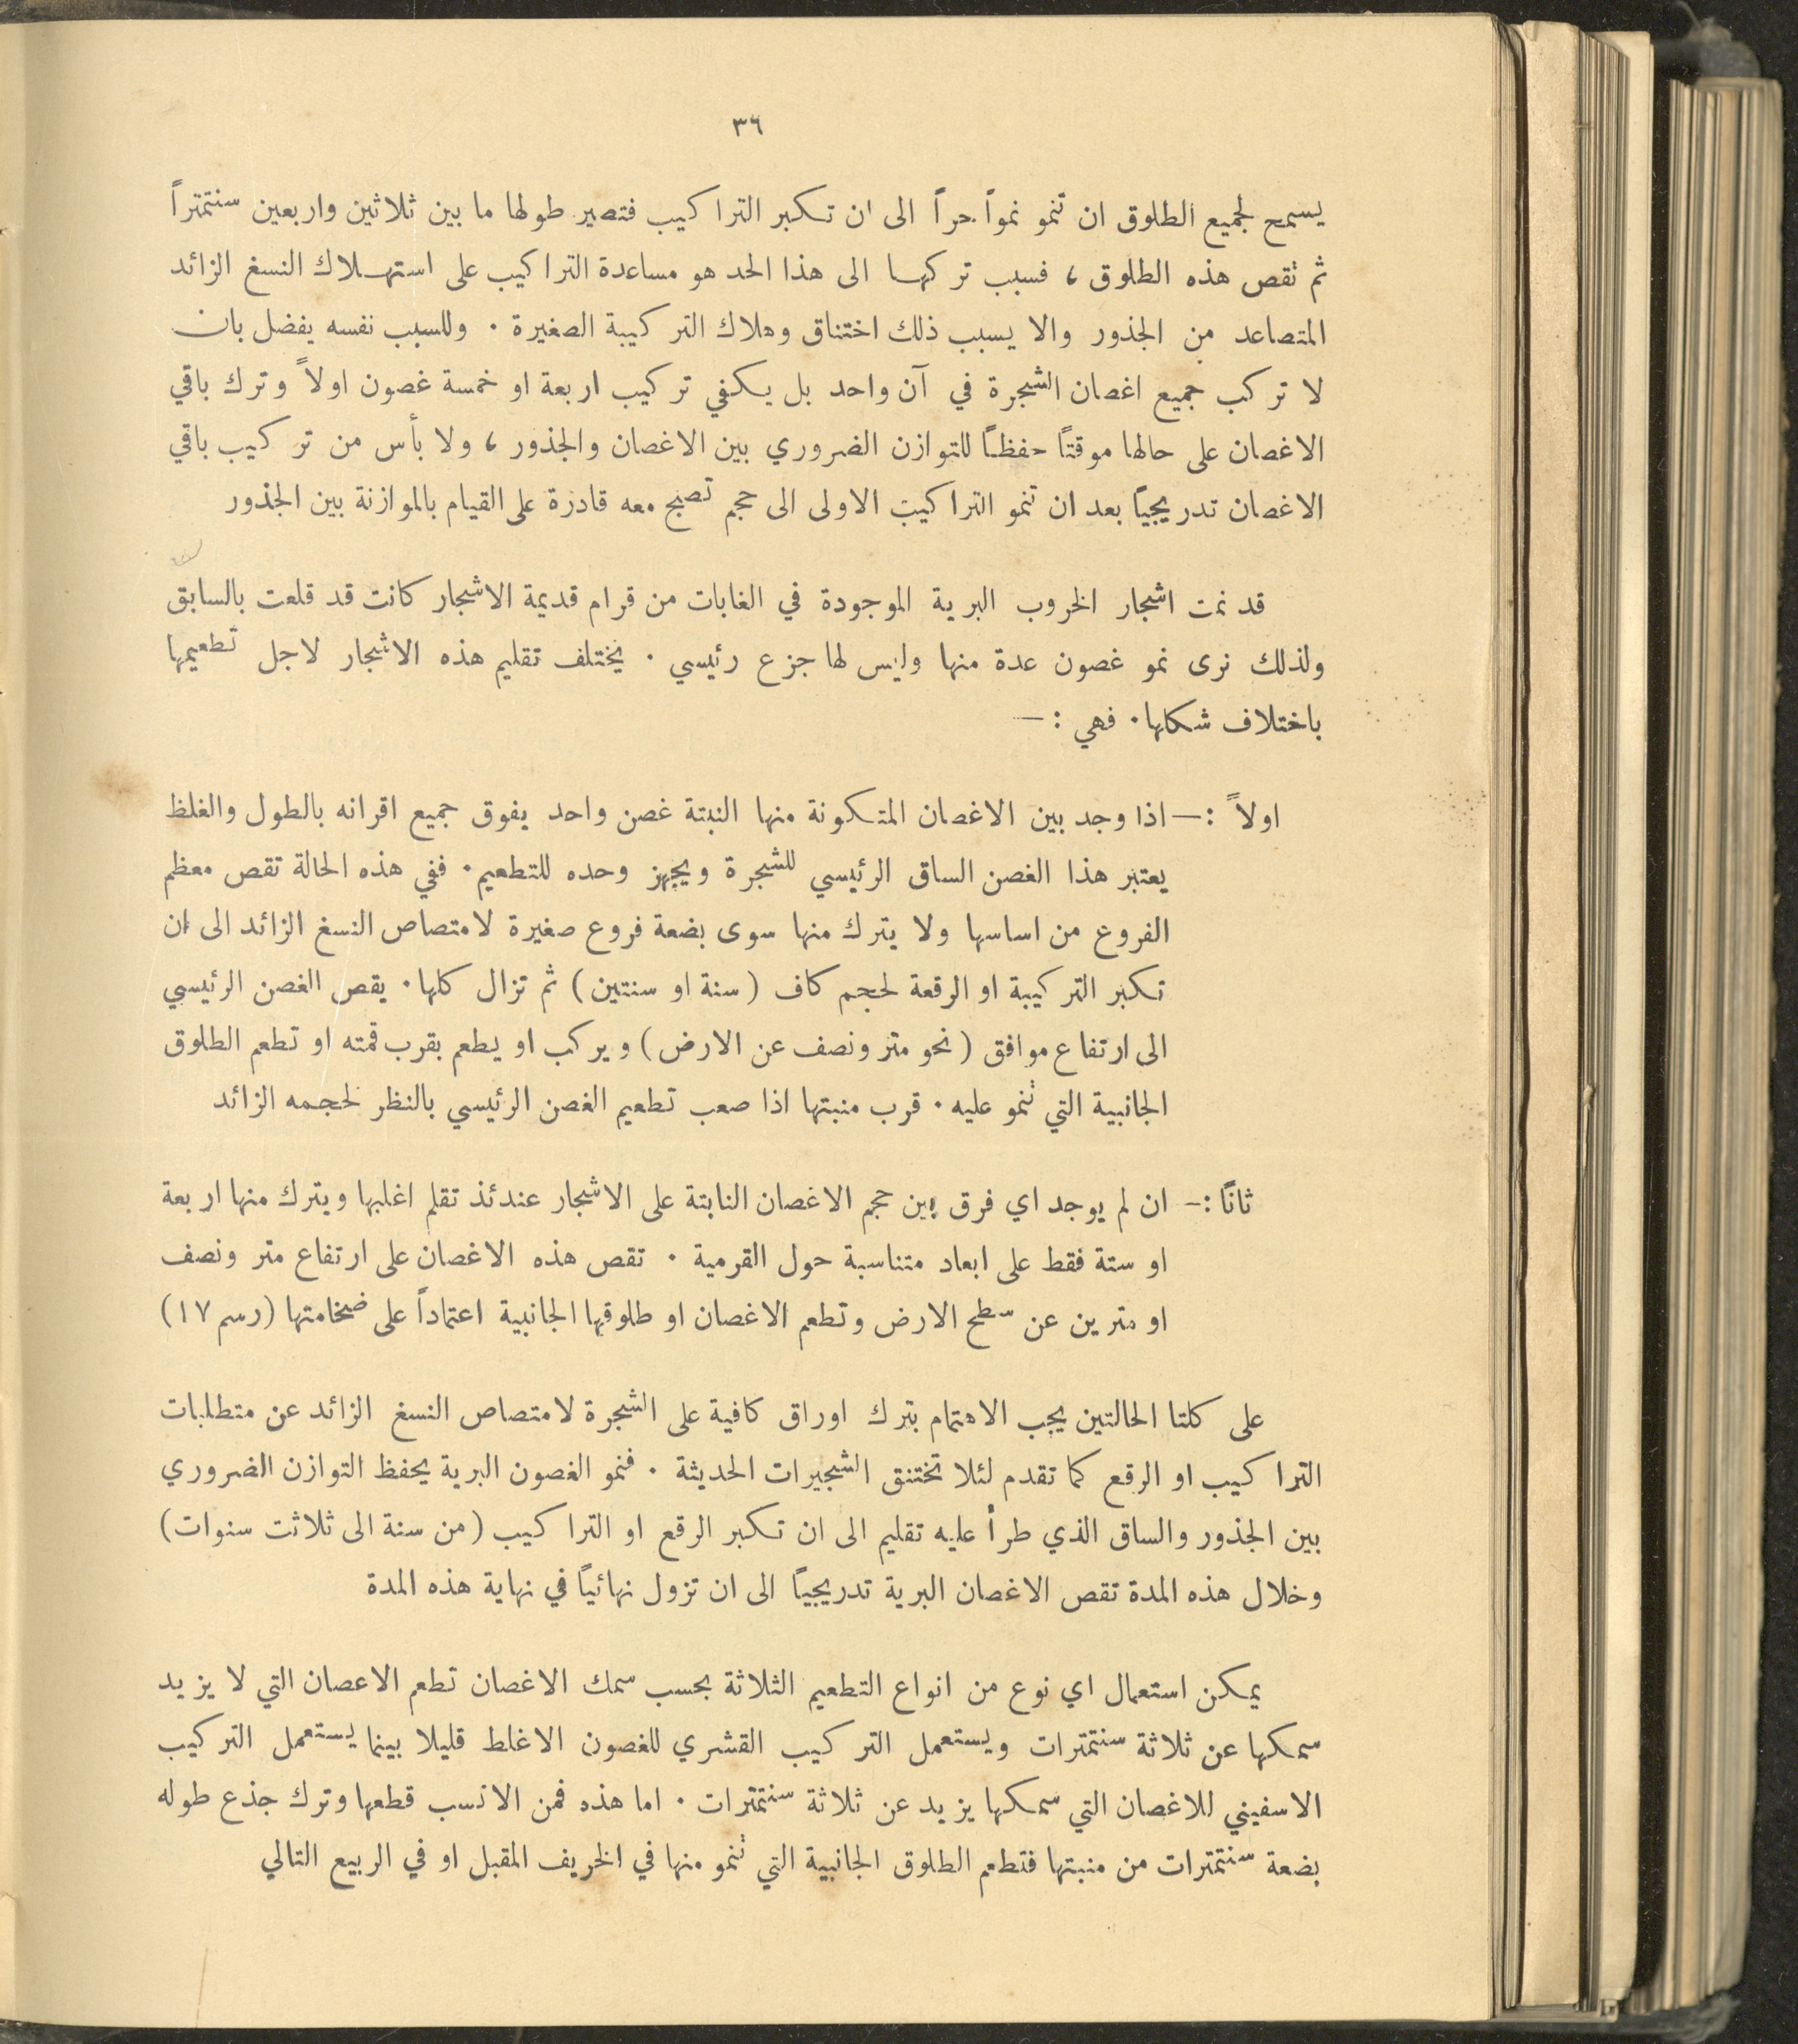 ٣٦
يسمح لجميع الطلوق ان تنمو نمواً حراً الى ان تكبر التراكيب فتصير طولها ما بين ثلاثين واربعين سنتمتراً
ثم تقص هذه الطلوق ، فسبب تركها الى هذا الحد هو مساعدة التراكيب على استهلاك النسغ الزائد
المتصاعد من الجذور والا يسبب ذلك اختناق وهلاك التركيبة الصغيرة . وللسبب نفسه يفضل بان
لا تركب جميع اغصان الشجرة في آن واحد بل يكفي تركيب اربعة او خمسة غصون اولاً وترك باقي
الاغصان على حالها موقتاً حفظاً للتوازن الضروري بين الاغصان والجذور ، ولا بأس من تركيب باقي
الاغصان تدريجياً بعد ان تنمو التراكيب الاولى الى حجم تصبح معه قادرة على القيام بالموازنة بين الجذور
قد نمت اشجار الخروب البرية الموجودة في الغابات من قرام قديمة الاشجار كانت قد قلعت بالسابق
ولذلك نرى نمو غصون عدة منها وليس لها جزع رئيسي . يختلف تقليم هذه الاشجار لاجل تطعيمها
باختلاف شكلها . فهي : —
اولاً : — اذا وجد بين الاغصان المتكونة منها النبتة غصن واحد يفوق جميع اقرانه بالطول والغلظ
يعتبر هذا الغصن الساق الرئيسي للشجرة ويجهز وحده للتطعيم . ففي هذه الحالة تقص معظم
الفروع من اساسها ولا يترك منها سوى بضعة فروع صغيرة لامتصاص النسغ الزائد الى ان
تكبر التركيبة او الرقعة لحجم كاف (سنة او سنتين) ثم تزال كلها . يقص الغصن الرئيسي
الى ارتفاع موافق (نحو متر ونصف عن الارض) ويركب او يطعم بقرب قمته او تطعم الطلوق
الجانبية التي تنمو عليه . قرب منبتها اذا صعب تطعيم الغصن الرئيسي بالنظر لحجمه الزائد
ثانًا : — ان لم يوجد اي فرق بين حجم الاغصان النابتة على الاشجار عندئذ تقلم اغلبها ويترك منها اربعة
او ستة فقط على ابعاد متناسبة حول القرمية . تقص هذه الاغصان على ارتفاع متر ونصف
او مترين عن سطح الارض وتطعم الاغصان او طلوقها الجانبية اعتماداً على ضخامتها (رسم ١٧)
على كلتا الحالتين يجب الاهتمام بترك اوراق كافية على الشجرة لامتصاص النسغ الزائد عن متطلبات
التراكيب او الرقع كما تقدم لئلا تختنق الشجيرات الحديثة . فنمو الغصون البرية يحفظ التوازن الضروري
بين الجذور والساق الذي طرأ عليه تقليم الى ان تكبر الرقع او التراكيب (من سنة الى ثلاثت سنوات)
وخلال هذه المدة تقص الاغصان البرية تدريجياً الى ان تزول نهائياً في نهاية هذه المدة
يمكن استعمال اي نوع من انواع التطعيم الثلاثة بحسب سمك الاغصان تطعم الاعصان التي لا يزيد
سمكها عن ثلاثة سنتمترات ويستعمل التركيب القشري للغصون الاغلط قليلا بينما يستعمل التركيب
الاسفيني للاغصان التي سمكها يزيد عن ثلاثة سنتمترات . اما هذه فمن الانسب قطعها وترك جذع طوله
بضعة سنتمترات من منبتها فتطعم الطلوق الجانبية التي تنمو منها في الخريف المقبل او في الربيع التالي